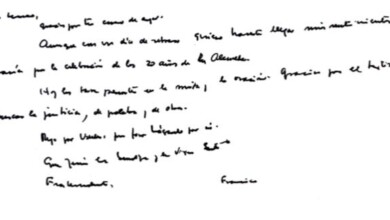 gracias por tu correo de ayer.
Aunque con un día de retraso quiero hacerte llegar mi
por la celebración de los 20 años de la Alameda.
Hoy les tuve presente en la misa, la oración. Gracias por el
la justicia, de palabra, de obra.
Rezo por Ustedes, por favor háganlo por mí.
Que Jesús los bendiga y la Virgen Santa
Fraternalmente, Francisco